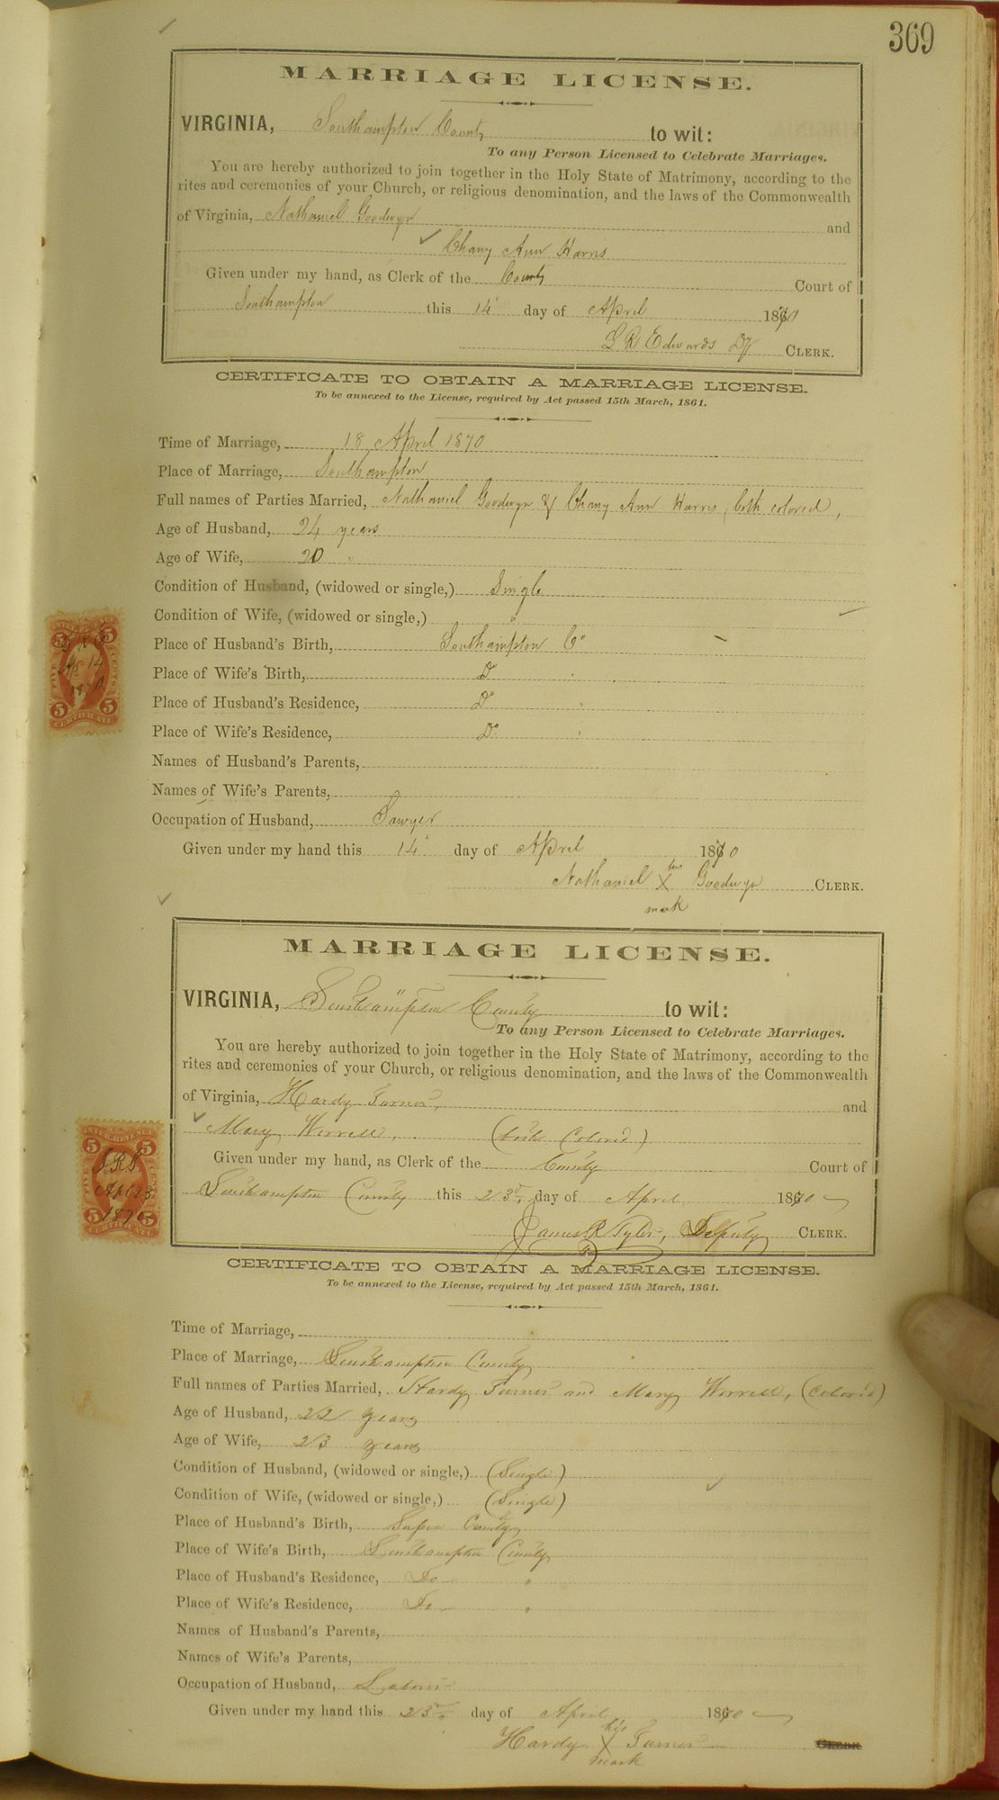 369
MARRIAGE LICENSE.
VIRGINIA, Southampton County to wit:
To any Person Licensed to Celebrate Marriages.
You are hereby authorized to join together in the Holy State of Matrimony, according to the
rites and ceremonies of your Church, or religious denomination, and the laws of the Commonwealth
of Virginia, Nathaniel Goodwyn and
Chany Ann Harris
Given under my hand, as Clerk of the County Court of
Southampton this 14 day of April 1870
L R Edwards Dy CLERK.
CERTIFICATE TO OBTAIN A MARRIAGE LICENSE.
To be annexed to the License, required by Act passed 15th March, 1861.
Time of Marriage, 18 April 1870
Place of Marriage, Southampton
Full names of Parties Married, Nathaniel Goodwyn & Chany Ann Harris, both colored,
Age of Husband, 24 years
Age of Wife, 20 "
Condition of Husband, (widowed or single,) Single
Condition of Wife, (widowed or single,) "
Place of Husband's Birth, Southampton Co
Place of Wife's Birth, Do
Place of Husband's Residence, Do
Place of Wife's Residence, Do
Names of Husband's Parents,
Names of Wife's Parents,
Occupation of Husband, Sawyer
Given under my hand this 14 day of April 1870
Nathaniel his X Goodwyn CLERK.
mark
MARRIAGE LICENSE.
VIRGINIA, Southampton County to wit:
To any Person Licensed to Celebrate Marriages.
You are hereby authorized to join together in the Holy State of Matrimony, according to the
rites and ceremonies of your Church, or religious denomination, and the laws of the Commonwealth
of Virginia, Hardy Turner, and
Mary Worrell, (both Colored)
Given under my hand, as Clerk of the County Court of
Southampton County this 23rd day of April 1870
James R Tyler, Deputy CLERK.
CERTIFICATE TO OBTAIN A MARRIAGE LICENSE.
To be annexed to the License, required by Act passed 15th March, 1861.
Time of Marriage,
Place of Marriage, Southampton County
Full names of Parties Married, Hardy Turner and Mary Worrell, (Colored)
Age of Husband, 22 years
Age of Wife, 23 years
Condition of Husband, (widowed or single,) (Single)
Condition of Wife, (widowed or single,) (Single)
Place of Husband's Birth, County
Place of Wife's Birth, Southampton County
Place of Husband's Residence, Do "
Place of Wife's Residence, Do "
Names of Husband's Parents,
Names of Wife's Parents,
Occupation of Husband, Laborer
Given under my hand this 23rd day of April 1870
Hardy his X Turner CLERK
mark